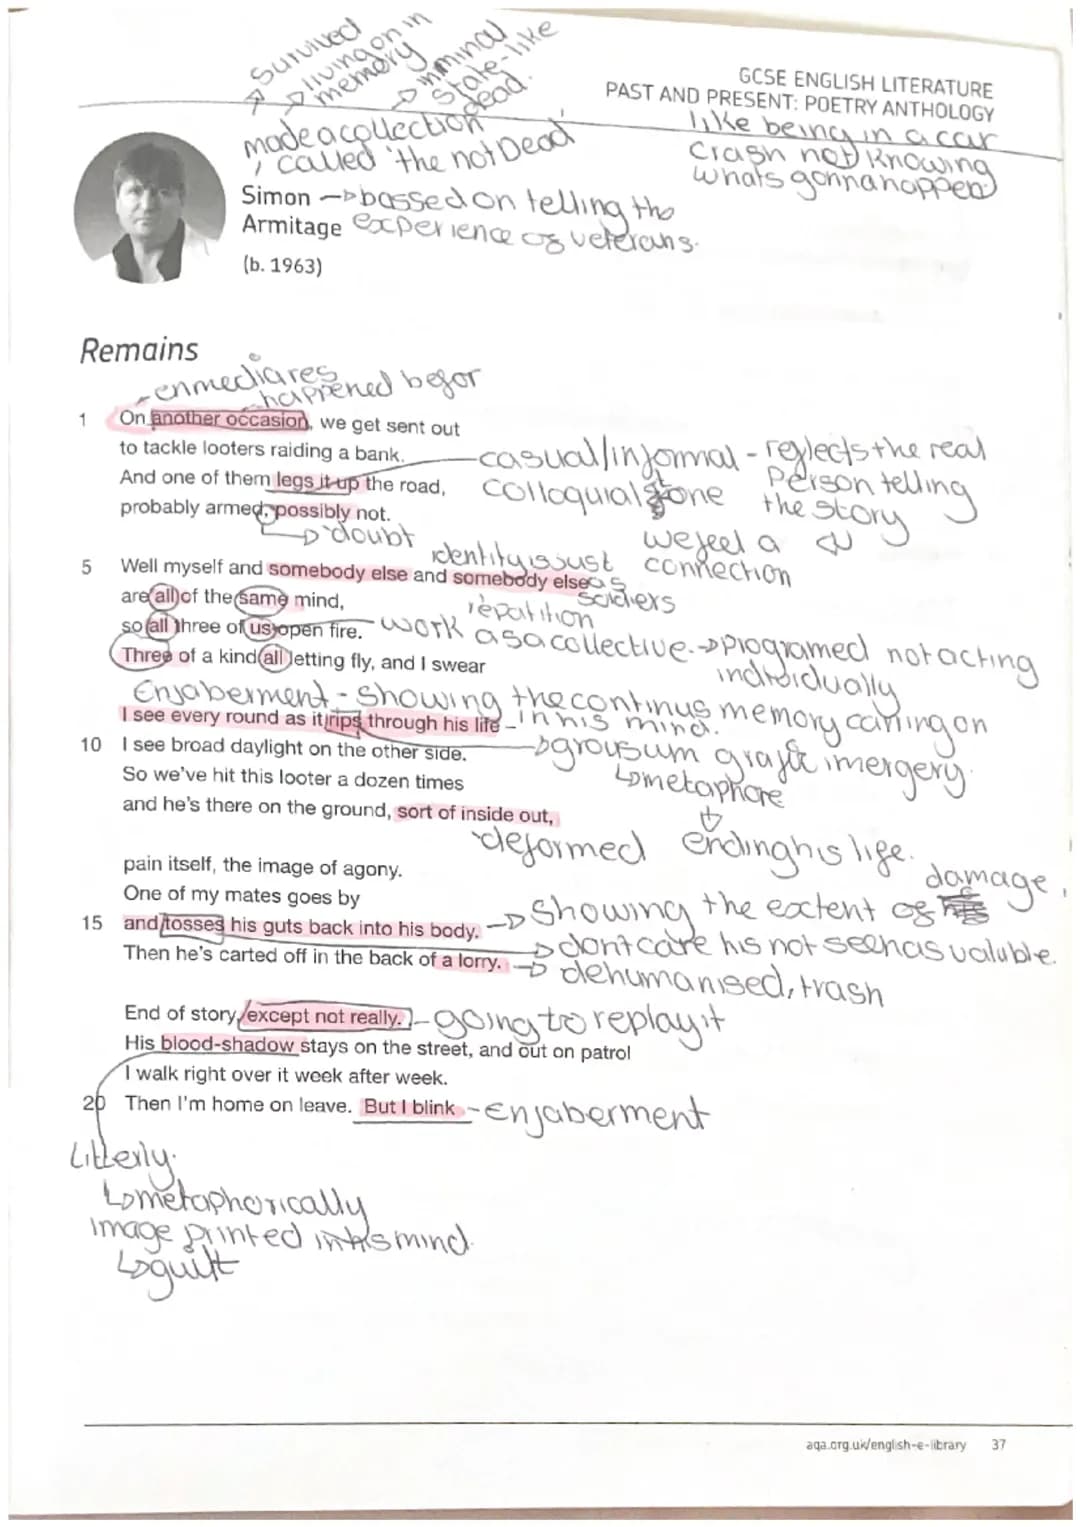 Survived
living on in
memory
inminal
state-like
dead.
GCSE ENGLISH LITERATURE
PAST AND PRESENT: POETRY ANTHOLOGY
made a collection
called 'the not Dead
like being in a car
Crash not knowing
whats gonna happen
Simon
Armitage
(b. 1963)
bassed on telling the
experience of veterans.
Remains
enmediares
happened befor
1 On another occasion, we get sent out
to tackle looters raiding a bank.
And one of them legs it up the road,
probably armed, possibly not.
casual/informal - reflects the real
Person telling
the story
colloquial tone
we feel a
connection
doubt
identity is just
as
soldiers
5 Well myself and somebody else and somebody else
are all of the same mind,
so all three of us open fire.
Three of a kind all letting fly, and I swear
repatition
work as a collective. programed not acting
indtoidually
Enjaberment - showing the continus memory carring on
in his mind.
I see every round as it rips through his life –
10 I see broad daylight on the other side.
So we've hit this looter a dozen times
and he's there on the ground, sort of inside out,
grousum grafic imergery.
metaphore
ending his life.
deformed
pain itself, the image of agony.
One of my mates goes by
15 and tosses his guts back into his body.
Then he's carted off in the back of a lorry.
Showing the extent of damage
dont care his not seen as valuble.
dehumanised, trash
End of story, except not really.
going to replay it
His blood-shadow stays on the street, and out on patrol
I walk right over it week after week.
20 Then I'm home on leave. But I blink
- Enjaberment
Litterly.
metaphorically
image printed in his mind.
guilt
aqa.org.uk/english-e-library 37